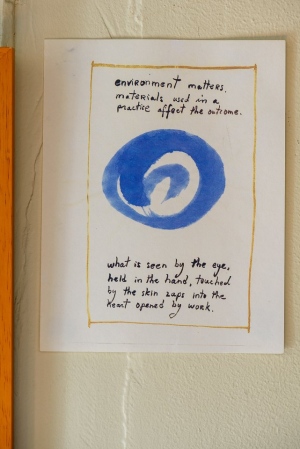 environment matters.
materials used in a
practice affect the outcome.
what is seen by the eye,
held in the hand, touched
by the skin zaps into the
heart opened by work.